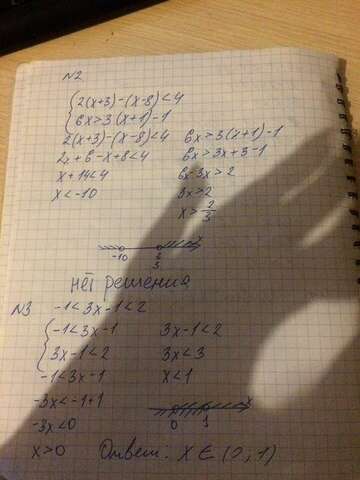 N2
{ 2(x+3)-(x-8)<4
6x>3(x+1)-1
2(x+3)-(x-8)<4 6x>3(x+1)-1
2x+6-x+8<4 6x>3x+3-1
x+14<4 6x-3x>2
x<-10 3x>2
x>2/3
-10 2/3 x
нет решения
N3 -1<3x-1<2
{ -1<3x-1 3x-1<2
3x-1<2 3x<3
-1<3x-1 x<1
-3x<-1+1
-3x<0 0 1 x
x>0 Ответ: x∈(0;1)